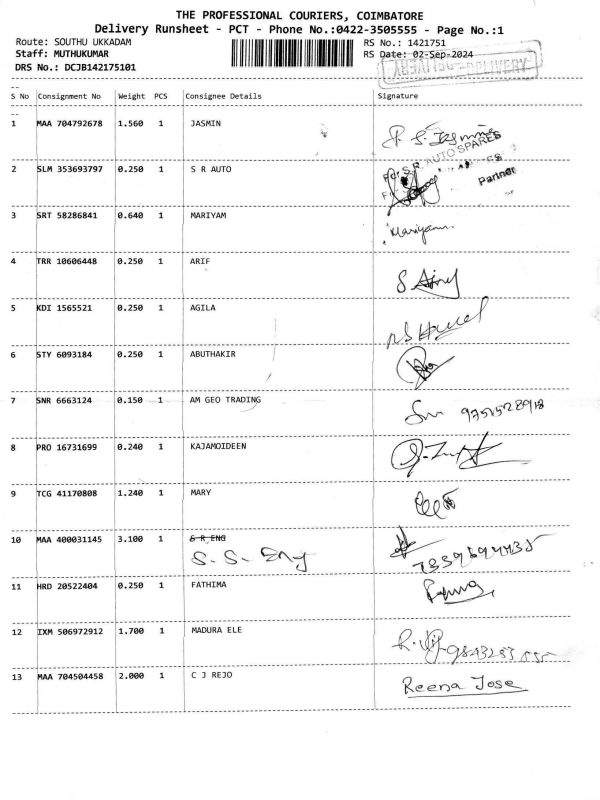 THE PROFESSIONAL COURIERS, COIMBATORE
Delivery Runsheet - PCT - Phone No.:0422-3505555 - Page No.:1
Route: SOUTHU UKKADAM RS No.: 1421751
Staff: MUTHUKUMAR RS Date: 02-Sep-2024
DRS No.: DCJB142175101
--
S No Consignment No Weight PCS Consignee Details Signature
--
1 MAA 704792678 1.560 1 JASMIN
AUTO SPARES
2 SLM 353693797 0.250 1 S R AUTO
Partner
3 SRT 58286841 0.640 1 MARIYAM
Mariyam
4 TRR 10606448 0.250 1 ARIF
5 KDI 1565521 0.250 1 AGILA
6 STY 6093184 0.250 1 ABUTHAKIR
7 SNR 6663124 0.150 1 AM GEO TRADING
8 PRO 16731699 0.240 1 KAJAMOIDEEN
9 TCG 41170808 1.240 1 MARY
10 MAA 400031145 3.100 1 S R ENG
S. S. Eng
11 HRD 20522404 0.250 1 FATHIMA
12 IXM 506972912 1.700 1 MADURA ELE
13 MAA 704504458 2.000 1 C J REJO Reena Jose